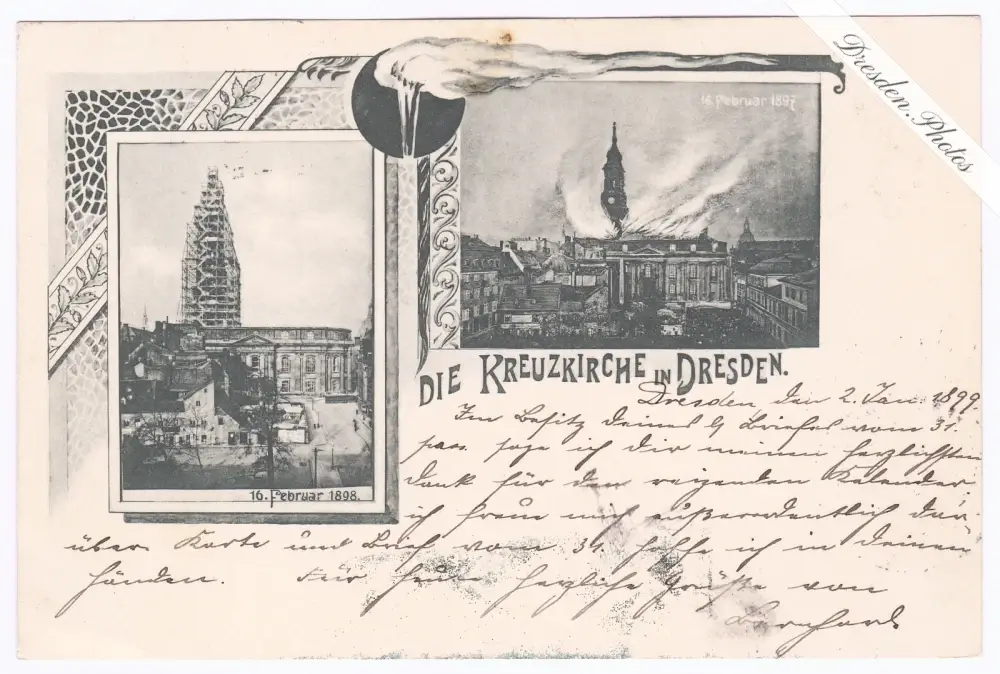 Dresden.Photos
16. Februar 1897
16. Februar 1898.
DIE KREUZKIRCHE IN DRESDEN.
Dresden den 2. Jan. 1899.
Im Besitz deines Briefes vom 31.
pass. sage ich dir meinen herzlichsten
Dank für den reizenden Kalender,
ich freue mich außerordentlich dar-
über. Karte und Brief vom 31. hoffe ich in deinen
Händen. Für heute herzliche Grüße von
Bernhard